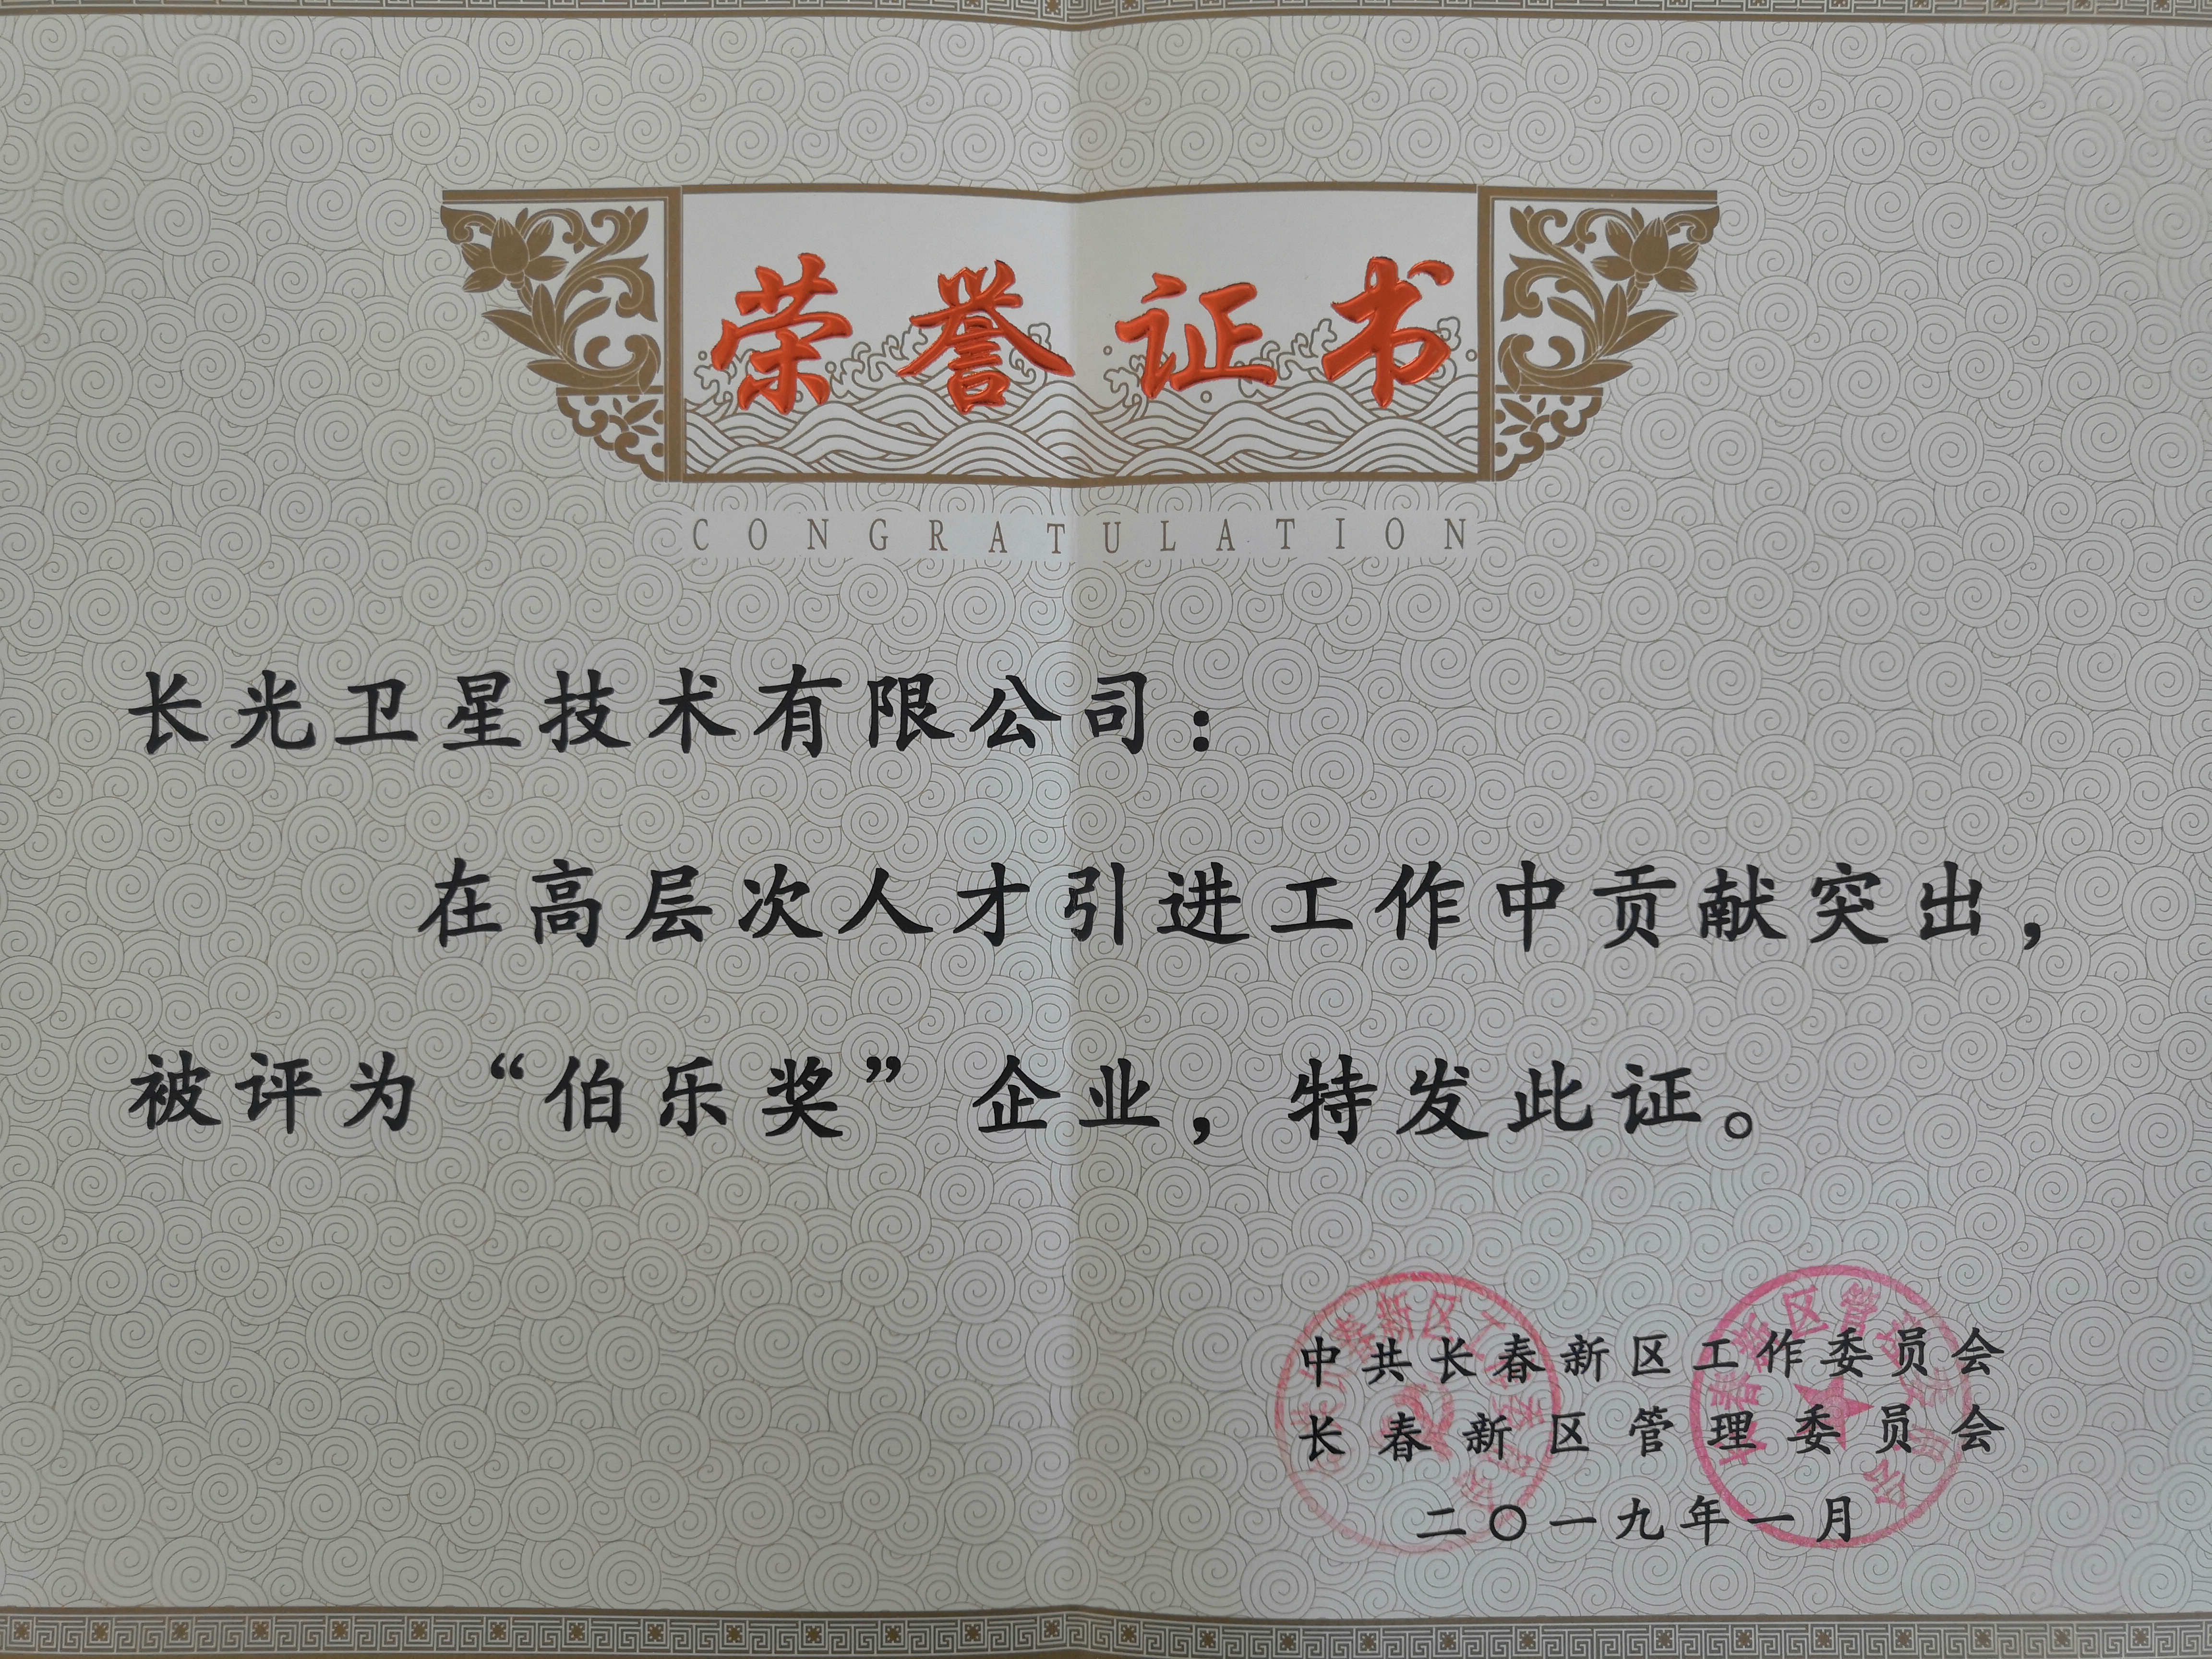 荣誉证书
CONGRATULATION
长光卫星技术有限公司：
在高层次人才引进工作中贡献突出，
被评为“伯乐奖”企业，特发此证。
中共长春新区工作委员会
长春新区管理委员会
二〇一九年一月